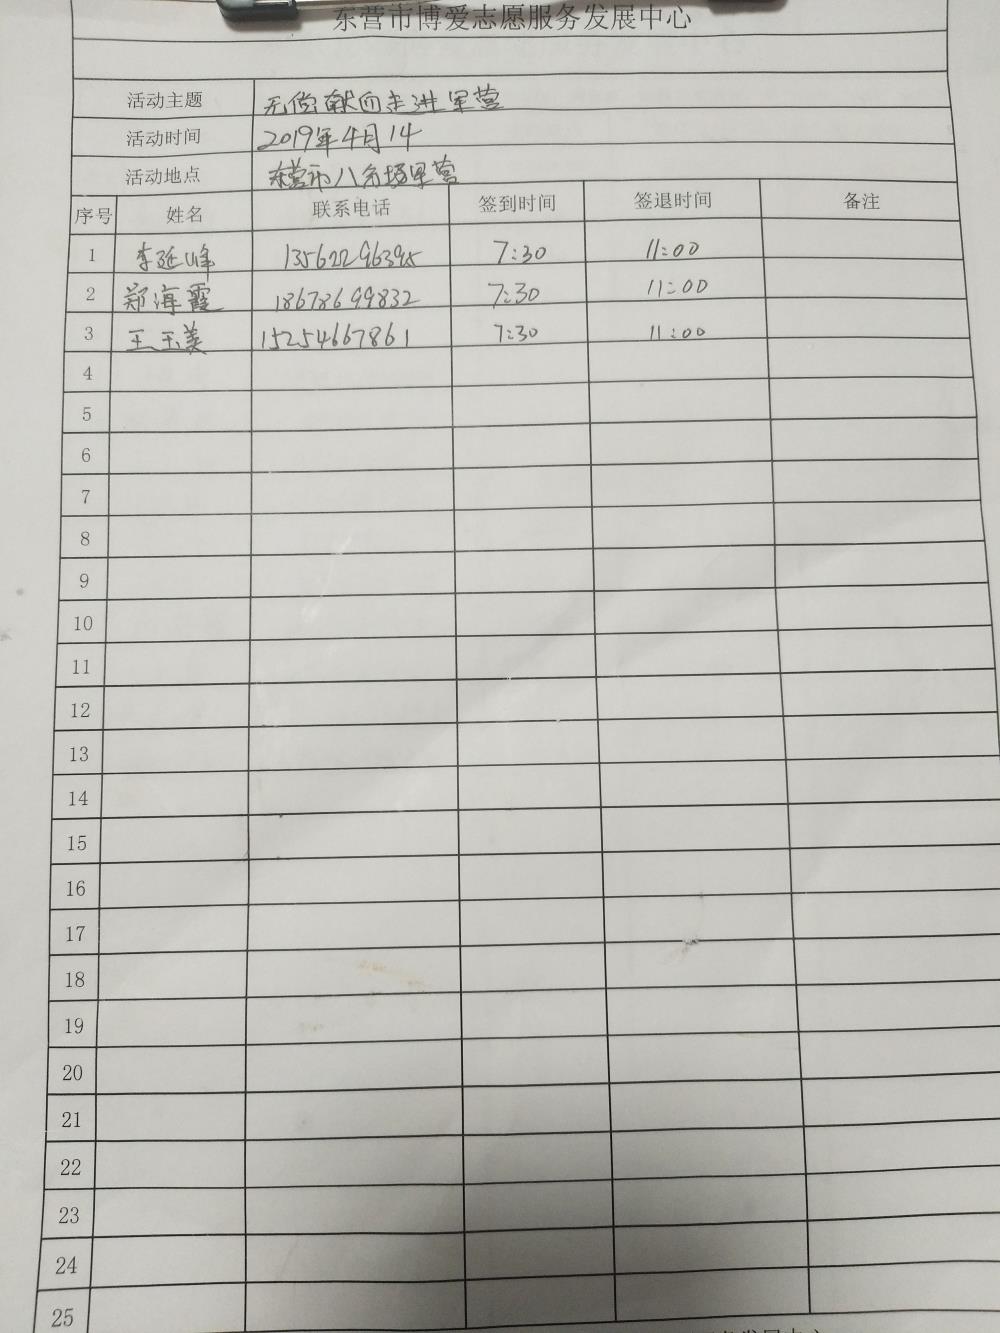 东营市博爱志愿服务发展中心
活动主题 无偿献血走进军营
活动时间 2019年4月14
活动地点 东营市八分场军营
序号 姓名 联系电话 签到时间 签退时间 备注
1 李延峰 13562296395 7:30 11:00
2 郑海霞 18678699832 7:30 11:00
3 王玉美 15254667861 7:30 11:00
4
5
6
7
8
9
10
11
12
13
14
15
16
17
18
19
20
21
22
23
24
25
发展中心